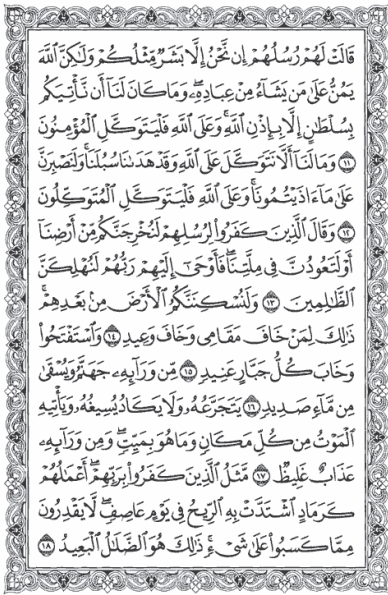 قَالَتْ لَهُمْ رُسُلُهُمْ إِن نَّحْنُ إِلَّا بَشَرٌ مِّثْلُكُمْ وَلَٰكِنَّ ٱللَّهَ
يَمُنُّ عَلَىٰ مَن يَشَآءُ مِنْ عِبَادِهِۦ ۖ وَمَا كَانَ لَنَآ أَن نَّأْتِيَكُم
بِسُلْطَٰنٍ إِلَّا بِإِذْنِ ٱللَّهِ ۚ وَعَلَى ٱللَّهِ فَلْيَتَوَكَّلِ ٱلْمُؤْمِنُونَ
١١ وَمَا لَنَآ أَلَّا نَتَوَكَّلَ عَلَى ٱللَّهِ وَقَدْ هَدَىٰنَا سُبُلَنَا ۚ وَلَنَصْبِرَنَّ
عَلَىٰ مَآ ءَاذَيْتُمُونَا ۚ وَعَلَى ٱللَّهِ فَلْيَتَوَكَّلِ ٱلْمُتَوَكِّلُونَ
١٢ وَقَالَ ٱلَّذِينَ كَفَرُوا۟ لِرُسُلِهِمْ لَنُخْرِجَنَّكُم مِّنْ أَرْضِنَآ
أَوْ لَتَعُودُنَّ فِى مِلَّتِنَا ۖ فَأَوْحَىٰٓ إِلَيْهِمْ رَبُّهُمْ لَنُهْلِكَنَّ
ٱلظَّٰلِمِينَ ١٣ وَلَنُسْكِنَنَّكُمُ ٱلْأَرْضَ مِنۢ بَعْدِهِمْ ۚ
ذَٰلِكَ لِمَنْ خَافَ مَقَامِى وَخَافَ وَعِيدِ ١٤ وَٱسْتَفْتَحُوا۟
وَخَابَ كُلُّ جَبَّارٍ عَنِيدٍ ١٥ مِّن وَرَآئِهِۦ جَهَنَّمُ وَيُسْقَىٰ
مِن مَّآءٍ صَدِيدٍ ١٦ يَتَجَرَّعُهُۥ وَلَا يَكَادُ يُسِيغُهُۥ وَيَأْتِيهِ
ٱلْمَوْتُ مِن كُلِّ مَكَانٍ وَمَا هُوَ بِمَيِّتٍ ۖ وَمِن وَرَآئِهِۦ
عَذَابٌ غَلِيظٌ ١٧ مَّثَلُ ٱلَّذِينَ كَفَرُوا۟ بِرَبِّهِمْ ۖ أَعْمَٰلُهُمْ
كَرَمَادٍ ٱشْتَدَّتْ بِهِ ٱلرِّيحُ فِى يَوْمٍ عَاصِفٍ ۖ لَّا يَقْدِرُونَ
مِمَّا كَسَبُوا۟ عَلَىٰ شَىْءٍ ۚ ذَٰلِكَ هُوَ ٱلضَّلَٰلُ ٱلْبَعِيدُ ١٨